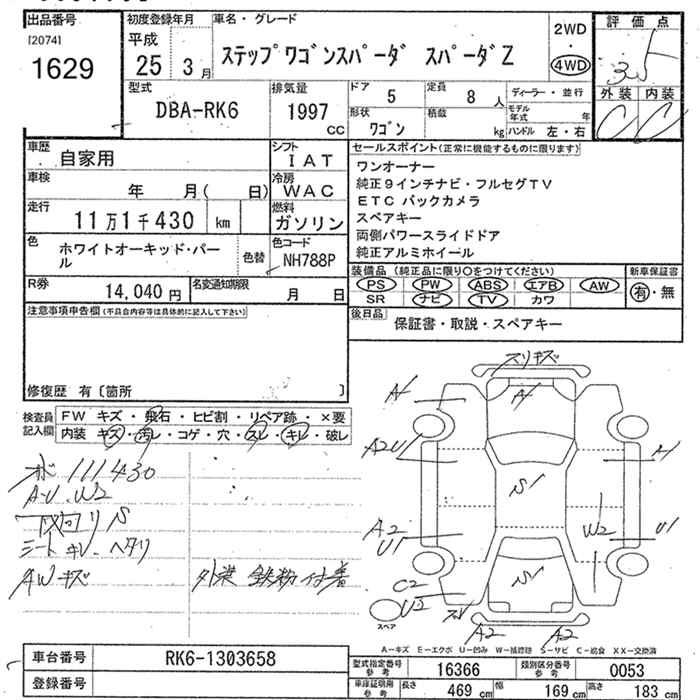 出品番号
[2074]
1629
初度登録年月
平成
25 3月
車名・グレード
ステップワゴンスパーダ スパーダZ
2WD
・
4WD
評価点
外装 内装
C C
型式
DBA-RK6
排気量
1997
CC
ドア
5
定員
8
人
形状
ワゴン
積載
kg
ディーラー・並行
モデル年式 年
ハンドル 左・右
車歴
自家用
シフト
IAT
車検
年 月( 日)
冷房
WAC
走行
11万1千430 km
燃料
ガソリン
色
ホワイトオーキッド・パー
ル
色替
色コード
NH788P
R券
14,040 円
名変通知期限
月 日
セールスポイント(正常に機能するものに限ります)
ワンオーナー
純正9インチナビ・フルセグTV
ETC バックカメラ
スペアキー
両側パワースライドドア
純正アルミホイール
装備品(純正品に限り○をつけてください)
PS PW ABS エアB AW
SR ナビ TV カワ
新車保証書
有・無
後日品
保証書・取説・スペアキー
注意事項申告欄(不具合内容等は具体的に記入して下さい)
修復歴 有〔箇所 〕
検査員
記入欄
FW キズ・飛石・ヒビ割・リペア跡・×要
内装 キズ・汚レ・コゲ・穴・スレ・キレ・破レ
111430
A・U・W2
シート キレ・ヘタリ
AWキズ
外装 鉄粉付着
スリキズ
A1
A1
A2U1
A1
S1
A2
U1
W2
U1
S1
C2
U2
A2
A2
スペア
A-キズ E-エクボ U-凹み W-補修跡 S-サビ C-腐食 XX-交換済
車台番号
RK6-1303658
登録番号
型式指定番号
参考
16366
類別区分番号
参考
0053
車庫証明用
参考
長さ
469 cm
幅
169 cm
高さ
183 cm